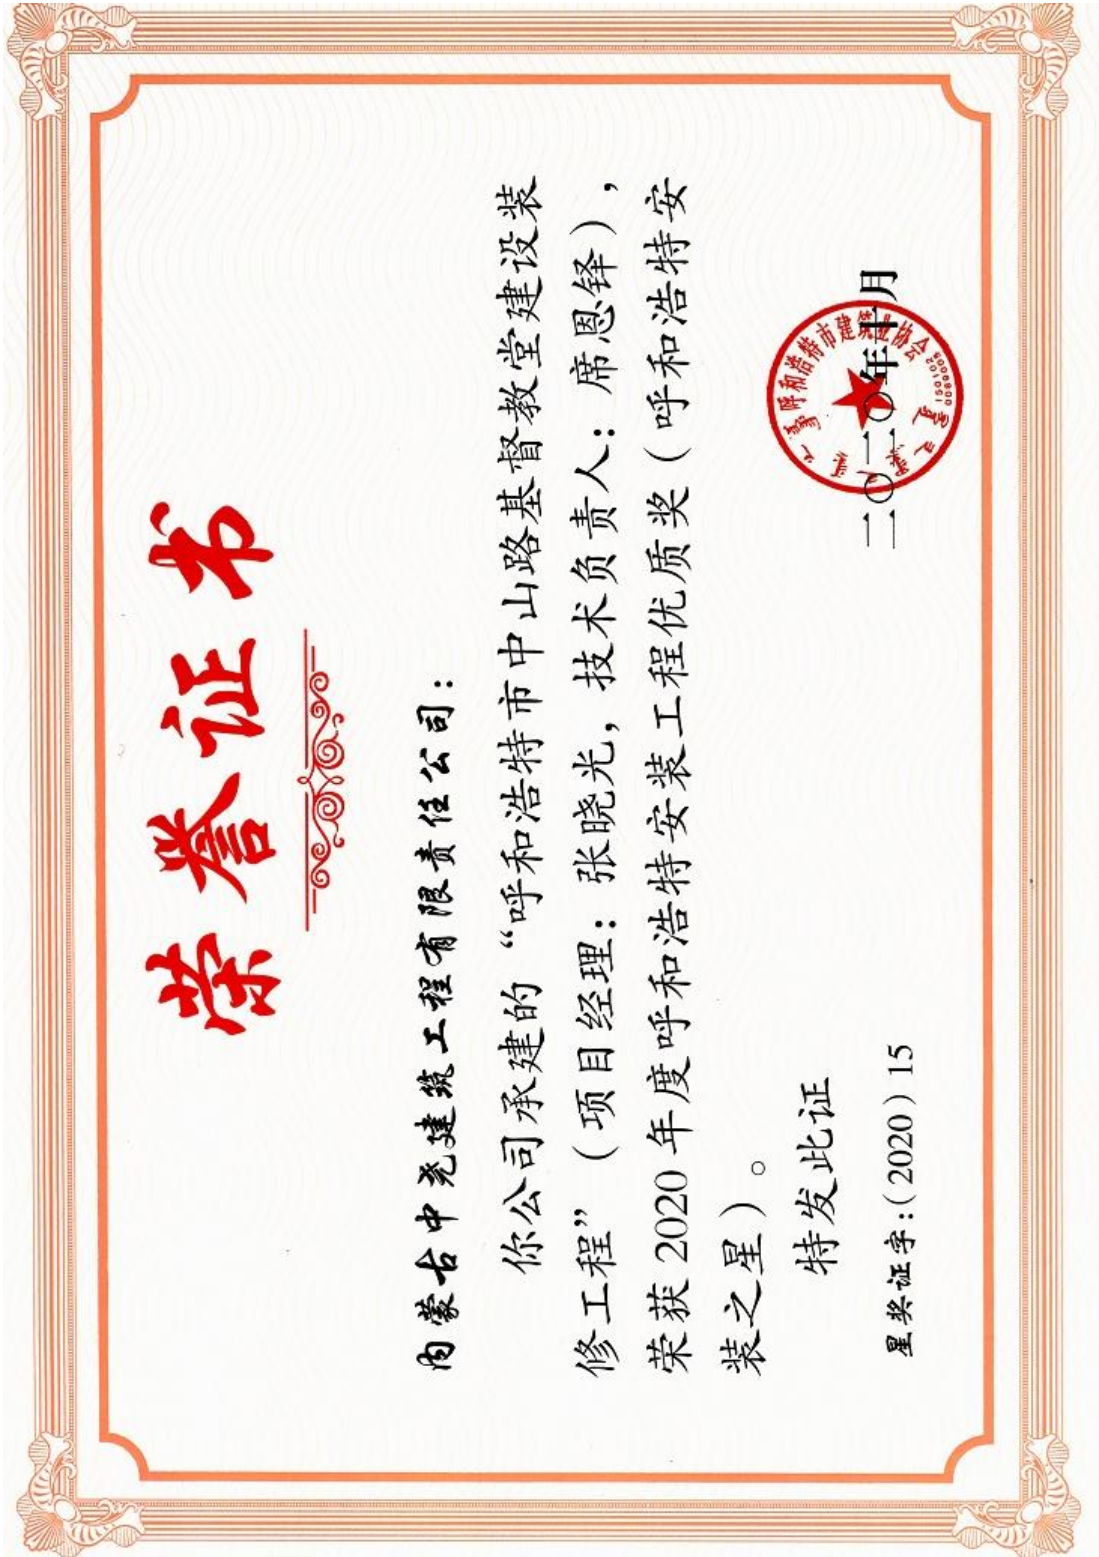 荣誉证书
内蒙古中尧建筑工程有限责任公司：
你公司承建的“呼和浩特市中山路基督教堂建设装
修工程”（项目经理：张晓光，技术负责人：席恩铎），
荣获2020年度呼和浩特安装工程优质奖（呼和浩特安
装之星）。
特发此证
星奖证字：(2020)15
呼和浩特市建筑业协会
二〇二〇年十月